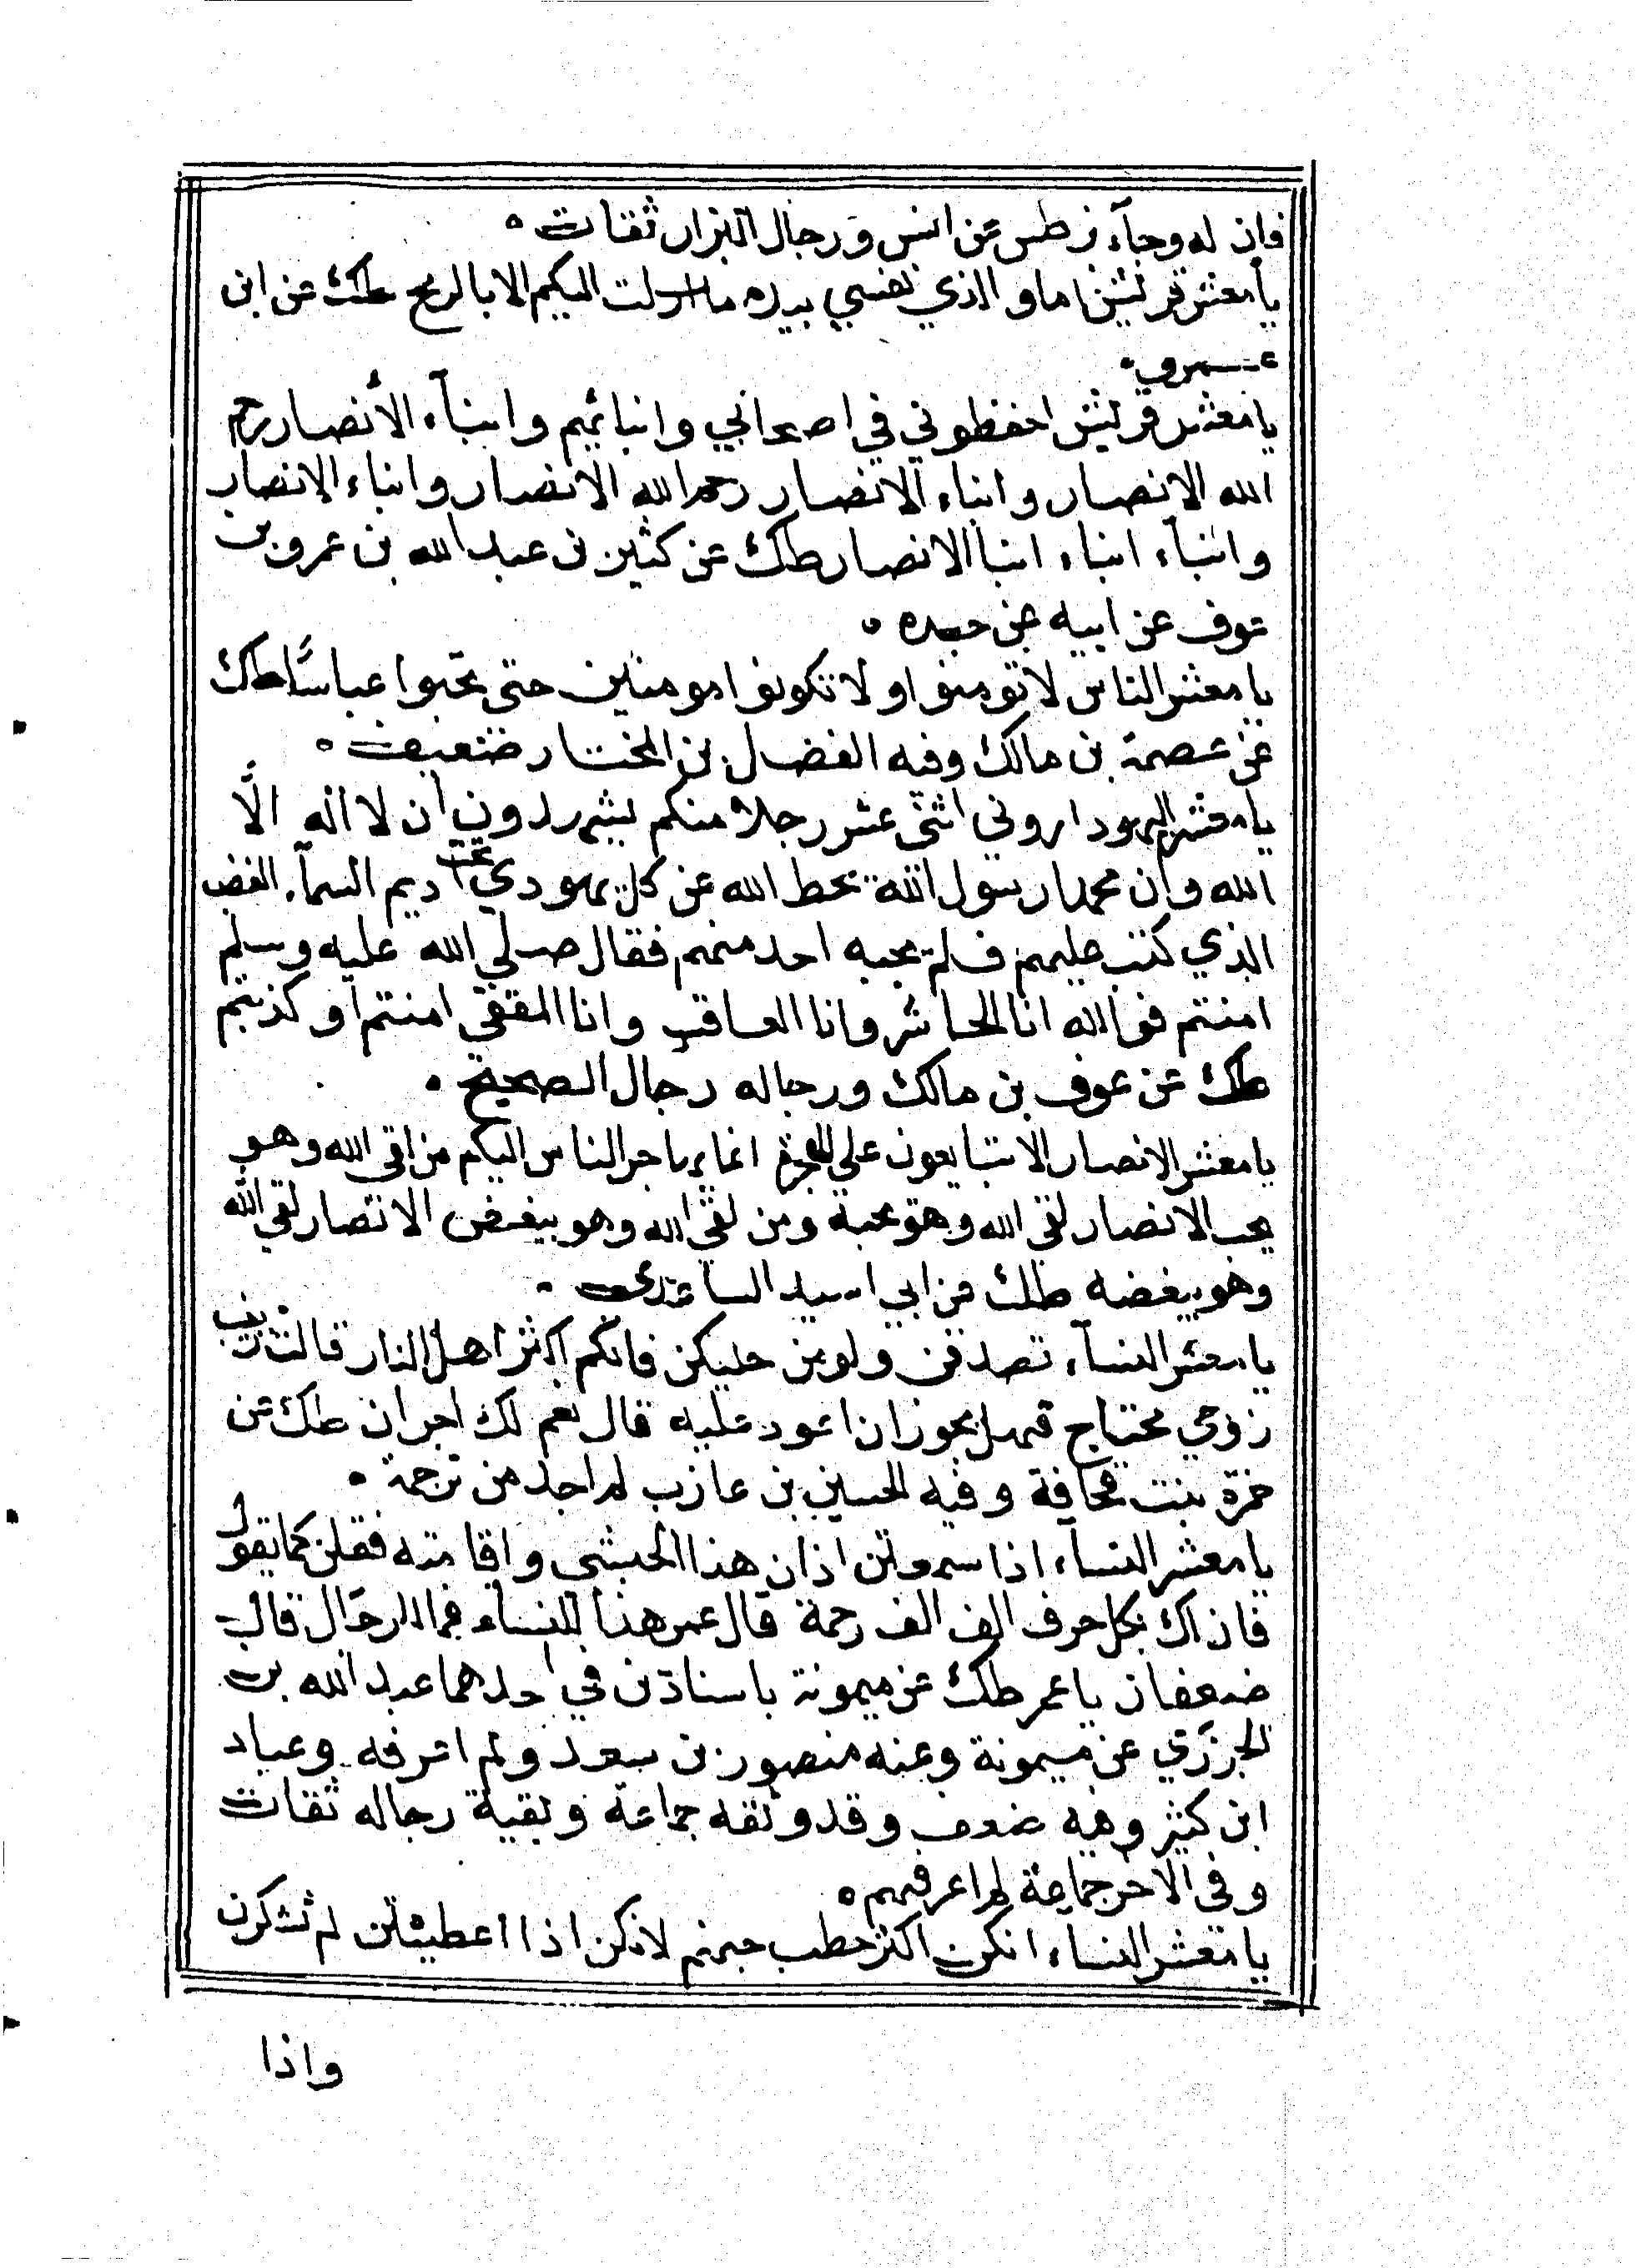 فإن له وجاء ز طس عن انس ورجال البزار ثقات ه
يا معشر قريش اما والذي نفسي بيده ما ارسلت اليكم الا بالريح طك عن ابن
عمرو ه
يا معشر قريش احفظوني في اصحابي وابنائهم وابناء الأنصار رحم
الله الانصار وابناء الانصار رحم الله الانصار وابناء الانصار
وابناء ابناء ابنا الانصار طك عن كثير بن عبد الله بن عمرو بن
عوف عن ابيه عن جده ه
يا معشر الناس لا تومنوا ولا تكونوا مومنين حتى تحبوا عباسا طك
عن عصمة بن مالك وفيه الفضل بن المختار ضعيف ه
يا معشر اليهود اروني اثنى عشر رجلا منكم يشهدون ان لا اله الا
الله وان محمدا رسول الله يحط الله عن كل يهودي تحت اديم السماء الغضب
الذي كتب عليهم فلم يجبه احد منهم فقال صلي الله عليه وسلم
امنتم فوالله انا الحاشر وانا العاقب وانا المقفي امنتم او كذبتم
طك عن عوف بن مالك ورجاله رجال الصحيح ه
يا معشر الانصار الا تبايعون علي انما يهاجر الناس اليكم من لقى الله وهو
يحب الانصار لقى الله وهو يحبه ومن لقى الله وهو يبغض الانصار لقي الله
وهو يبغضه طك عن ابي اسيد الساعدي ه
يا معشر النساء تصدقن ولو من حليكن فانكم اكثر اهل النار قالت زينب
زوجي محتاج فهل يجوز ان اعود عليه قال نعم لك اجران طك عن
حمزة بنت قحافة وفيه الحسين بن عازب لم اجد من ترجمه ه
يا معشر النساء اذا سمعتن اذان هذا الحبشي واقامته فقلن كما يقول
فان لك بكل حرف الف الف رحمة قال عمر هذا للنساء فما للرجال قال
ضعفان يا عمر طك عن ميمونة باسنادن في احدهما عبد الله بن
الجزري عن ميمونة وعنه منصور بن سعد ولم اعرفه وعباد
ابن كثير وفيه ضعف وقد وثقه جماعة وبقية رجاله ثقات
وفى الاخر جماعة لم اعرفهم ه
يا معشر النساء انكن اكثر حطب جهنم لانكن اذا اعطيتن لم تشكرن
واذا